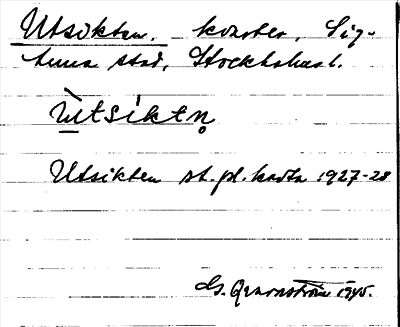 Utsikten. kvarter, Sig-
tuna stad, Stockholms l.
ùtsíktn̥
Utsikten st.pl.karta 1927-28
G. Qvarnström 1945.